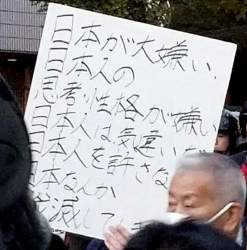 日本が大嫌い.
日本人の
思考・性格が嫌い
日本人は気違いだ
日本人を許さな
日本なんか
滅して